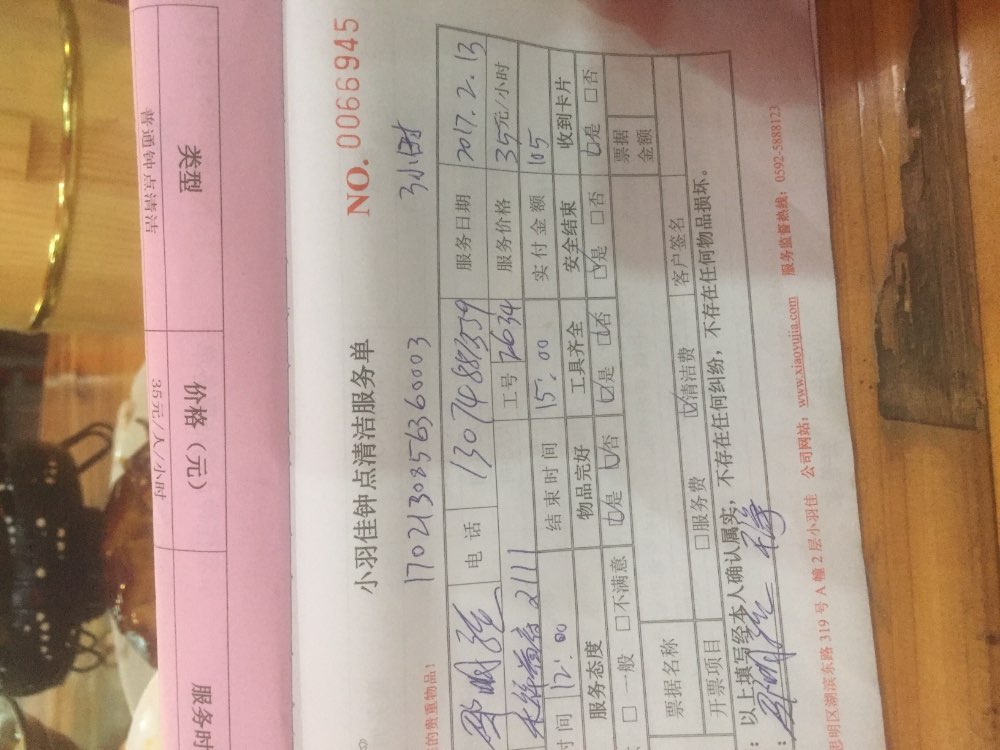 类型
价格（元）
服务时
普通钟点清洁
35元/人/小时
小羽佳钟点清洁服务单
NO. 0066945
1702130856360003
3小时
的贵重物品！
电话 13074881359 服务日期 2017.2.13
2111 工号 2634 服务价格 35元/小时
时间 12:00 结束时间 15:00 实付金额 105
服务态度 物品完好 工具齐全 安全结束 收到卡片
□一般 □不满意 □是 □否 □是 □否 □是 □否 □是 □否
票据名称 票据金额
开票项目 □服务费 ☑清洁费 客户签名
以上填写经本人确认属实，不存在任何纠纷，不存在任何物品损坏。
思明区湖滨东路 319 号 A 幢 2 层小羽佳 公司网站：www.xiaoyujia.com 服务监督热线：0592-5888123